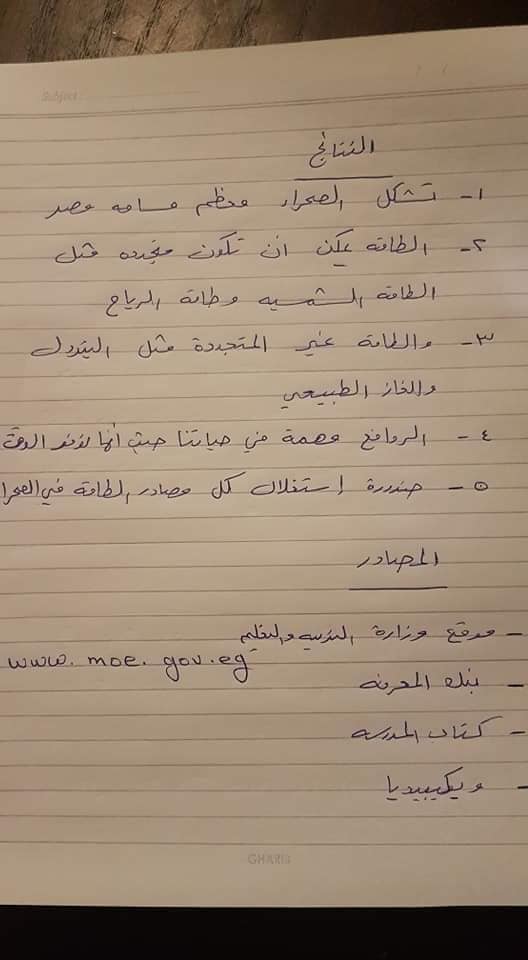 Subject
النتائج
١- تشكل الصحراء معظم مساحه مصر
٢- الطاقة يمكن ان تكون متجدده مثل
الطاقة الشمسيه وطاقة الرياح
٣- والطاقة غير المتجددة مثل البترول
والغاز الطبيعي
٤- الروافع مهمة في حياتنا حيث أنها توفر الوقت
٥- ضرورة إستغلال كل مصادر الطاقة في الصحرا
المصادر
- موقع وزارة التربيه والتعليم
www.moe.gov.eg
- بنك المعرفه
- كتاب المدرسه
- ويكيبيديا